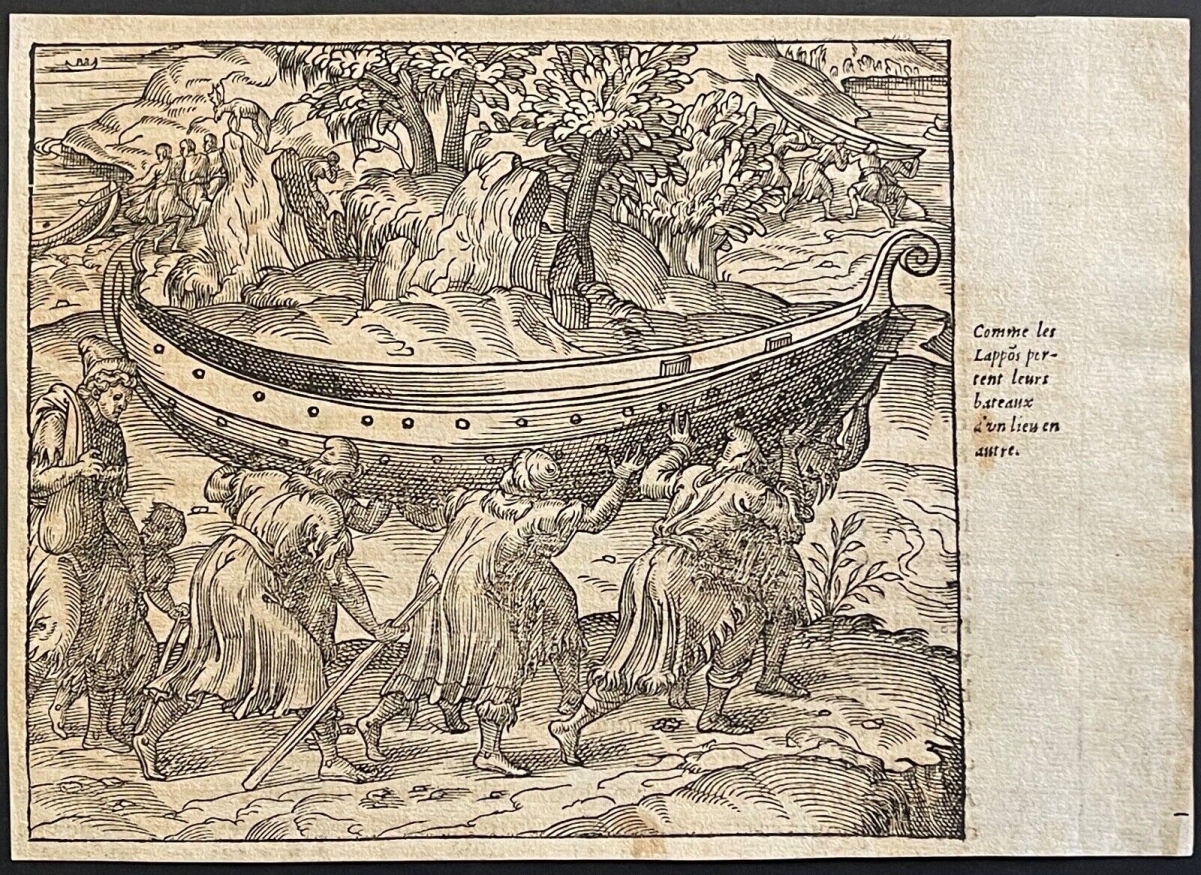 Comme les
Lappõs por-
tent leurs
bateaux
d'vn lieu en
autre.